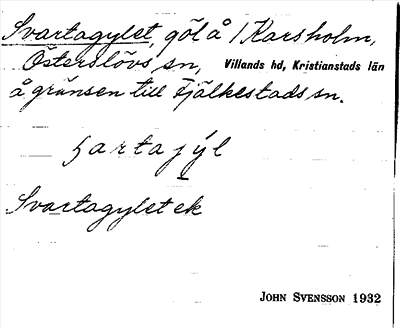 Svartagylet, göl å /Karsholm,
Österslövs sn, Villands hd, Kristianstads län
å gränsen till Fjälkestads sn.
Svartagylet ek
JOHN SVENSSON 1932